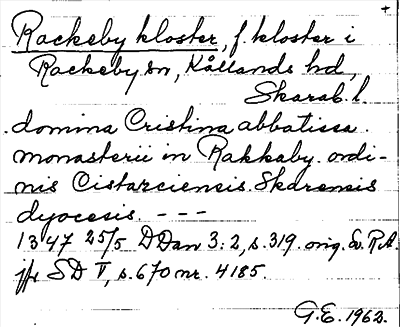 +
Rackeby kloster, f. kloster i
Rackeby sn, Kållands hd,
Skarab. l.
domina Cristina abbatissa
monasterii in Rakkaby ordi-
nis Cistarciensis Skarensis
dyocesis. - - -
1347 25/5 DDan 3:2, s. 319. orig. Sv. R.A.
jfr SD V, s. 670 nr. 4185.
G.E. 1962.